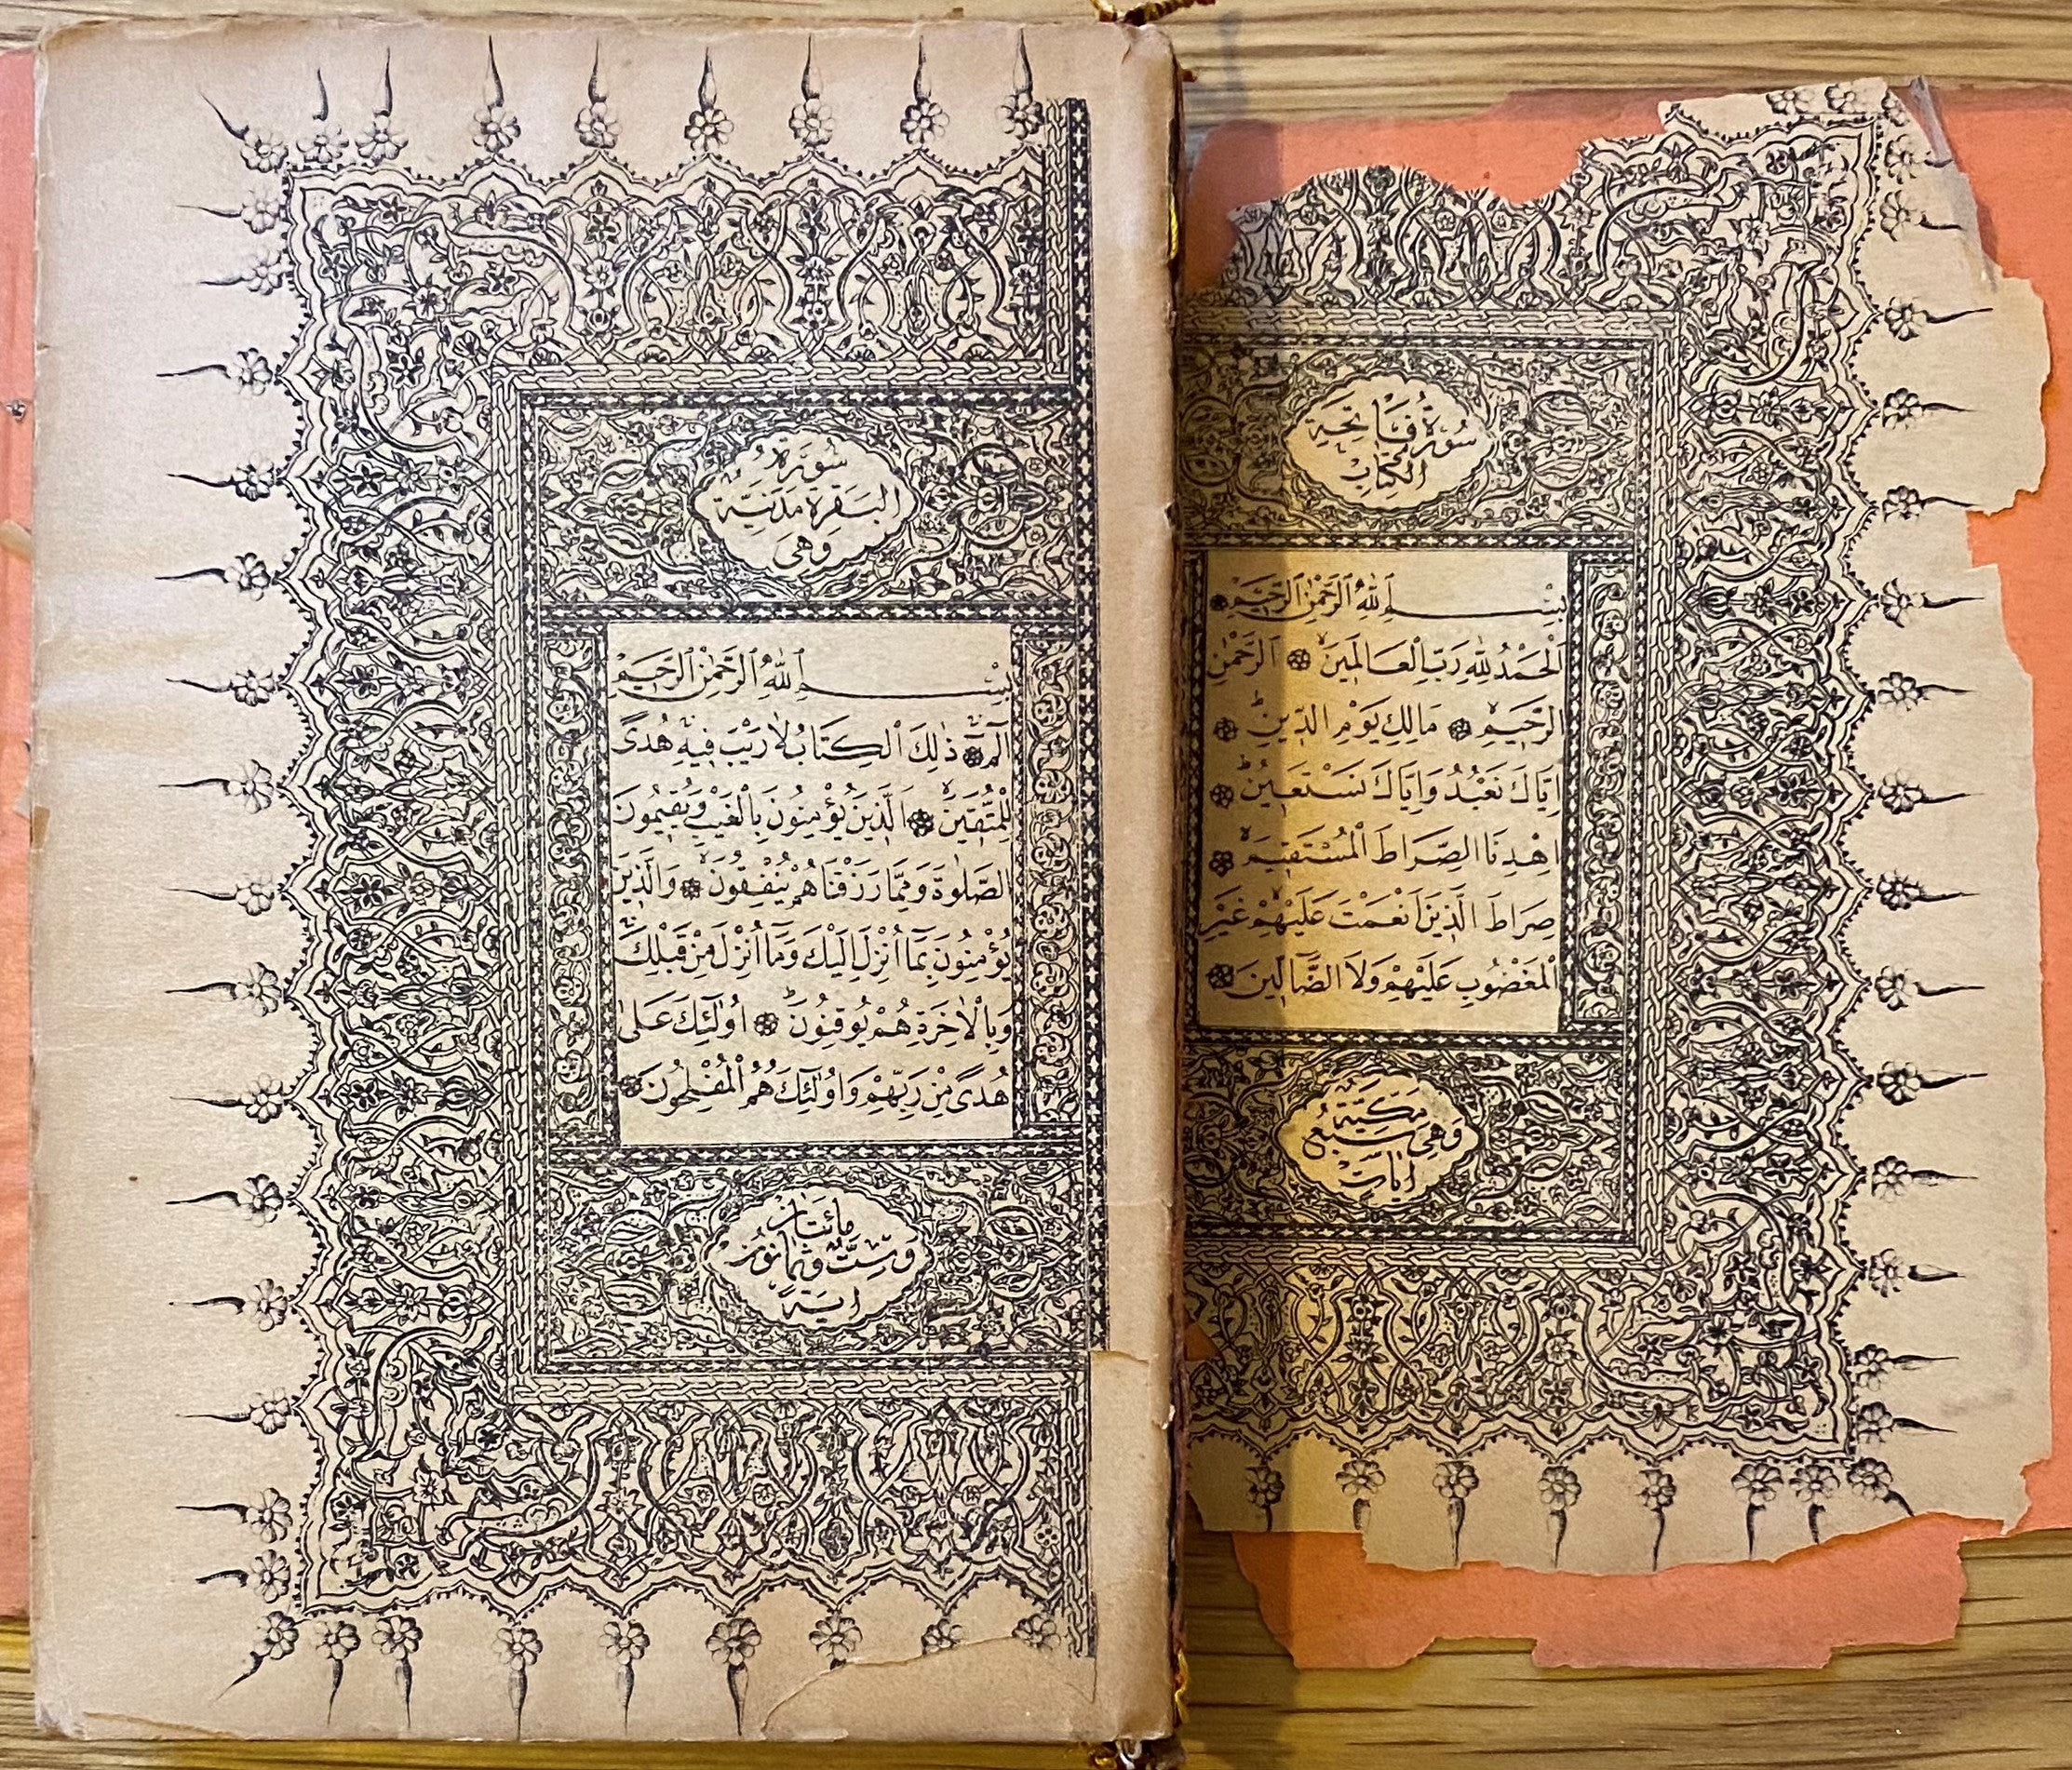 سُورَةُ فَاتِحَةِ
الكِتَابِ
بِسْمِ اللهِ الرَّحْمٰنِ الرَّحِيمِ
اَلْحَمْدُ لِلّٰهِ رَبِّ الْعَالَمِينَ ۙ الرَّحْمٰنِ
الرَّحِيمِ ۙ مَالِكِ يَوْمِ الدِّينِ ۜ
اِيَّاكَ نَعْبُدُ وَاِيَّاكَ نَسْتَعِينُ ۜ
اِهْدِنَا الصِّرَاطَ الْمُسْتَقِيمَ ۙ
صِرَاطَ الَّذِينَ اَنْعَمْتَ عَلَيْهِمْ غَيْرِ
الْمَغْضُوبِ عَلَيْهِمْ وَلَا الضَّالِّينَ
مَكِّيَّةٌ
وَهِيَ سَبْعُ
اٰيَاتٍ
سُورَةُ
البَقَرَةِ مَدَنِيَّةٌ
وَهِيَ
بِسْمِ اللهِ الرَّحْمٰنِ الرَّحِيمِ
الٓمٓ ۚ ذٰلِكَ الْكِتَابُ لَا رَيْبَ فِيهِ هُدًى
لِلْمُتَّقِينَ ۙ اَلَّذِينَ يُؤْمِنُونَ بِالْغَيْبِ وَيُقِيمُونَ
الصَّلٰوةَ وَمِمَّا رَزَقْنَاهُمْ يُنْفِقُونَ ۙ وَالَّذِينَ
يُؤْمِنُونَ بِمَٓا اُنْزِلَ اِلَيْكَ وَمَٓا اُنْزِلَ مِنْ قَبْلِكَ ۚ
وَبِالْاٰخِرَةِ هُمْ يُوقِنُونَ ۜ اُولٰٓئِكَ عَلٰى
هُدًى مِنْ رَبِّهِمْ وَاُولٰٓئِكَ هُمُ الْمُفْلِحُونَ
مِائَتَانِ
وَسِتٌّ وَثَمَانُونَ
اٰيَةً